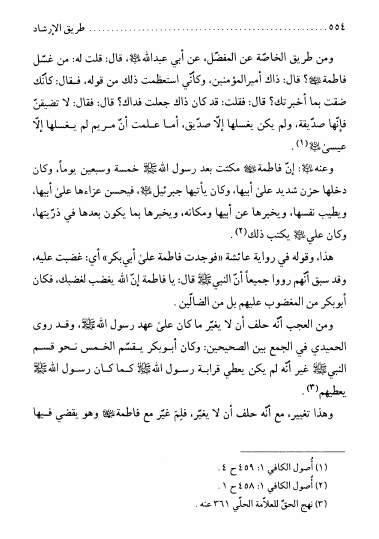 ٥٥٤ ........................................................ طريق الإرشاد
ومن طريق الخاصّة عن المفضّل، عن أبي عبدالله ﷺ، قال: قلت له: من غسّل
فاطمة ﷺ؟ قال: ذاك أميرالمؤمنين، وكأنّي استعظمت ذلك من قوله، فقال: كأنّك
ضقت بما أخبرتك؟ قال: فقلت: قد كان ذاك جعلت فداك؟ قال: فقال: لا تضيقنّ
فإنّها صدّيقة، ولم يكن يغسلها إلّا صدّيق، أما علمت أنّ مريم لم يغسلها إلّا
عيسىٰ(١).
وعنه: إنّ فاطمة مكثت بعد رسول الله ﷺ خمسة وسبعين يوماً، وكان
دخلها حزن شديد علىٰ أبيها، وكان يأتيها جبرئيل، فيحسن عزاءها علىٰ أبيها،
ويطيب نفسها، ويخبرها عن أبيها ومكانه، ويخبرها بما يكون بعدها في ذرّيتها،
وكان علي يكتب ذلك(٢).
هذا، وقوله في رواية عائشة «فوجدت فاطمة علىٰ أبي‌بكر» أي: غضبت عليه،
وقد سبق أنّهم رووا جميعاً أنّ النبي ﷺ قال: يا فاطمة إنّ الله يغضب لغضبك، فكان
أبوبكر من المغضوب عليهم بل من الضالّين.
ومن العجب أنّه حلف أن لا يغيّر ما كان علىٰ عهد رسول الله ﷺ، وقد روى
الحميدي في الجمع بين الصحيحين: وكان أبوبكر يقسّم الخمس نحو قسم
النبي ﷺ غير أنّه لم يكن يعطي قرابة رسول الله ﷺ كما كان رسول الله ﷺ
يعطيهم(٣).
وهذا تغيير، مع أنّه حلف أن لا يغيّر، فلِمَ غيّر مع فاطمة وهو يقضي فيها
(١) أُصول الكافي ١: ٤٥٩ ح ٤.
(٢) أُصول الكافي ١: ٤٥٨ ح ١.
(٣) نهج الحقّ للعلاّمة الحلّي ٣٦١ عنه.